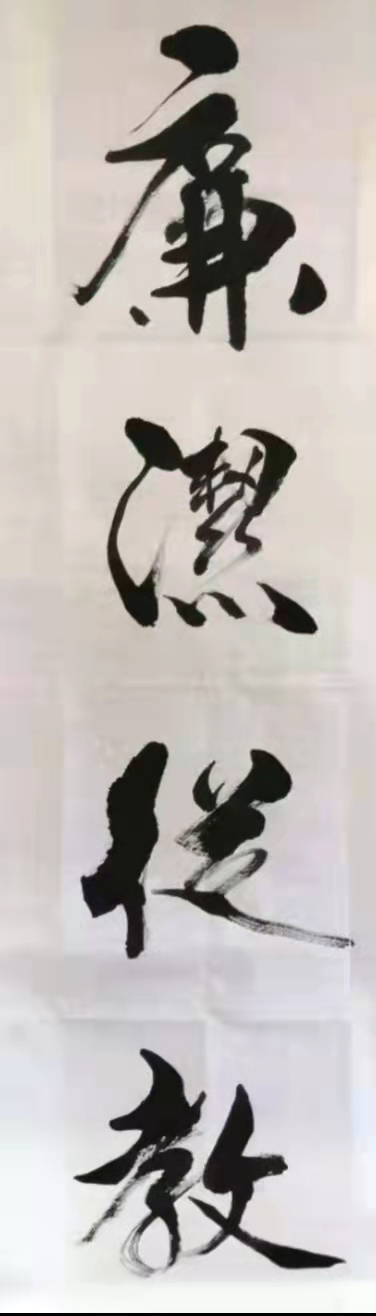 廉潔從教